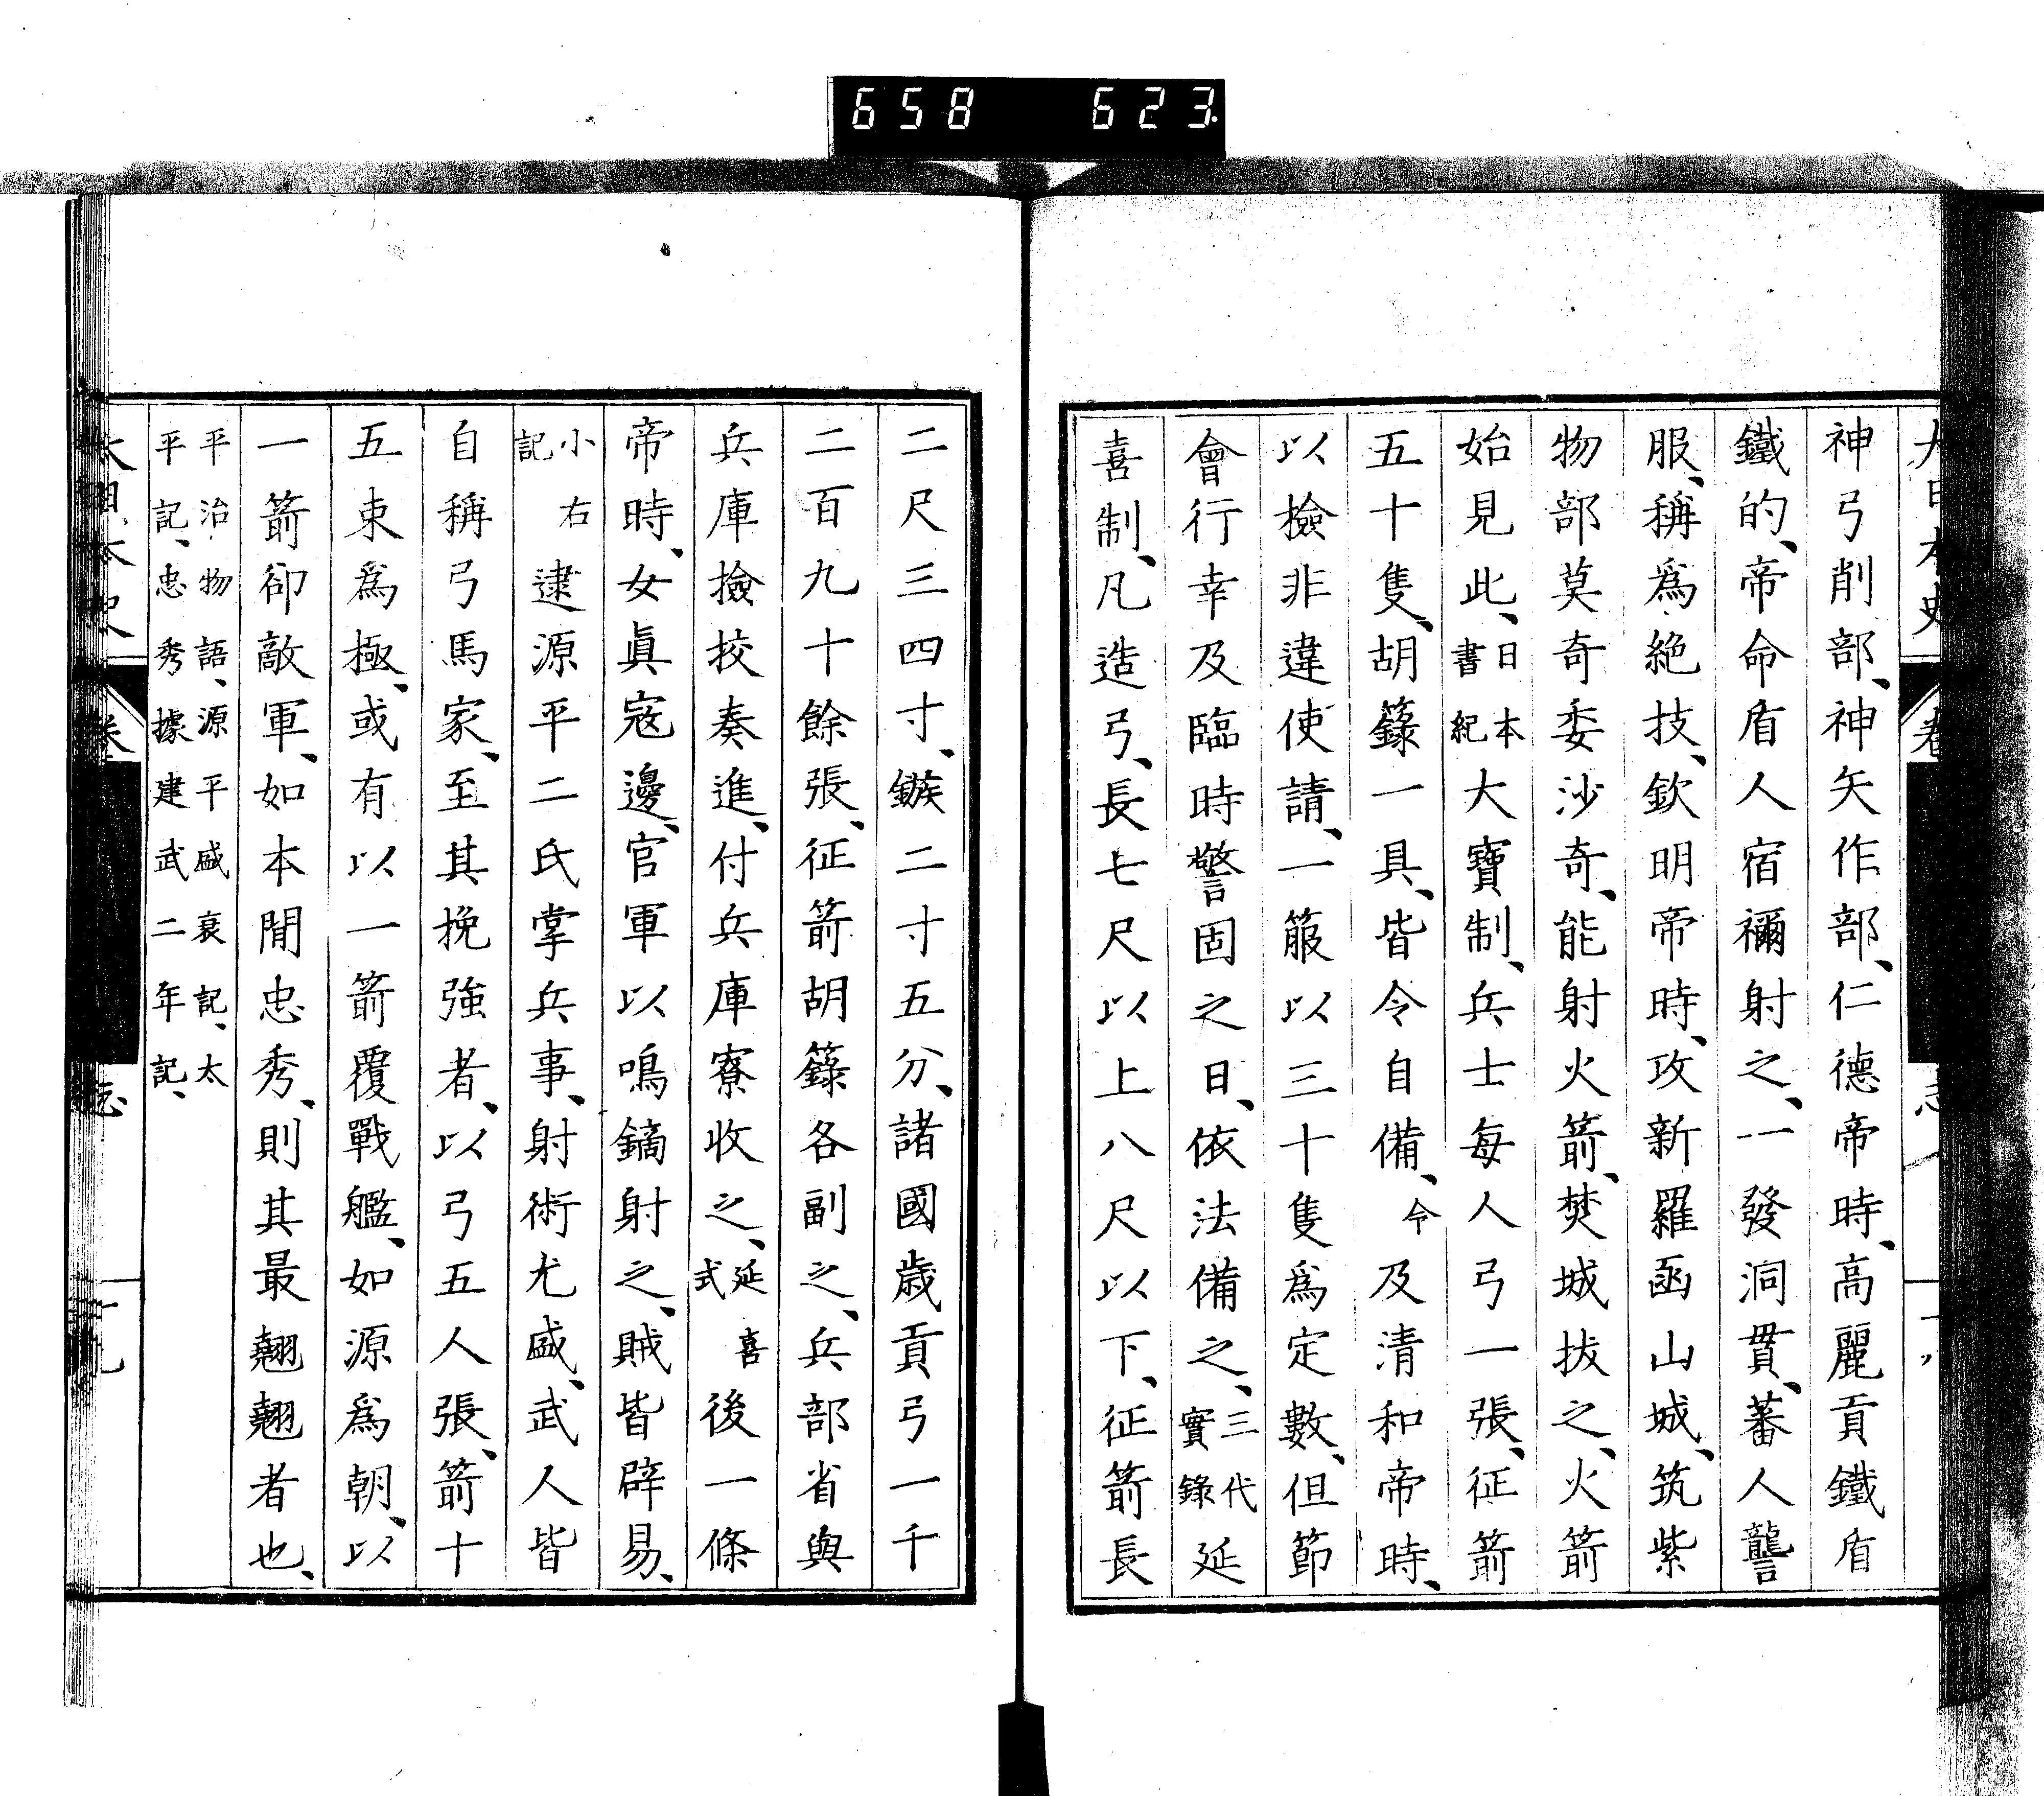 658 623
大日本史 卷 志
神弓削部、神矢作部、仁德帝時、高麗貢鐵盾
鐵的、帝命盾人宿禰射之、一發洞貫、蕃人讋
服、稱爲絶技、欽明帝時、攻新羅函山城、筑紫
物部莫奇委沙奇、能射火箭、焚城拔之、火箭
始見此、日本書紀大寶制、兵士每人弓一張、征箭
五十隻、胡籙一具、皆令自備、令及清和帝時、
以檢非違使請、一箙以三十隻爲定數、但節
會行幸及臨時警固之日、依法備之、三代實錄延
喜制、凡造弓、長七尺以上八尺以下、征箭長
二尺三四寸、鏃二寸五分、諸國歲貢弓一千
二百九十餘張、征箭胡籙各副之、兵部省與
兵庫撿挍奏進、付兵庫寮收之、延喜式後一條
帝時、女眞寇邊、官軍以鳴鏑射之、賊皆辟易、
小右記逮源平二氏掌兵事、射術尤盛、武人皆
自稱弓馬家、至其挽強者、以弓五人張、箭十
五束爲極、或有以一箭覆戰艦、如源爲朝、以
一箭卻敵軍、如本間忠秀、則其最翹翹者也、
平治物語、源平盛衰記、太
平記、忠秀據建武二年記、
大日本史 卷 志 十九